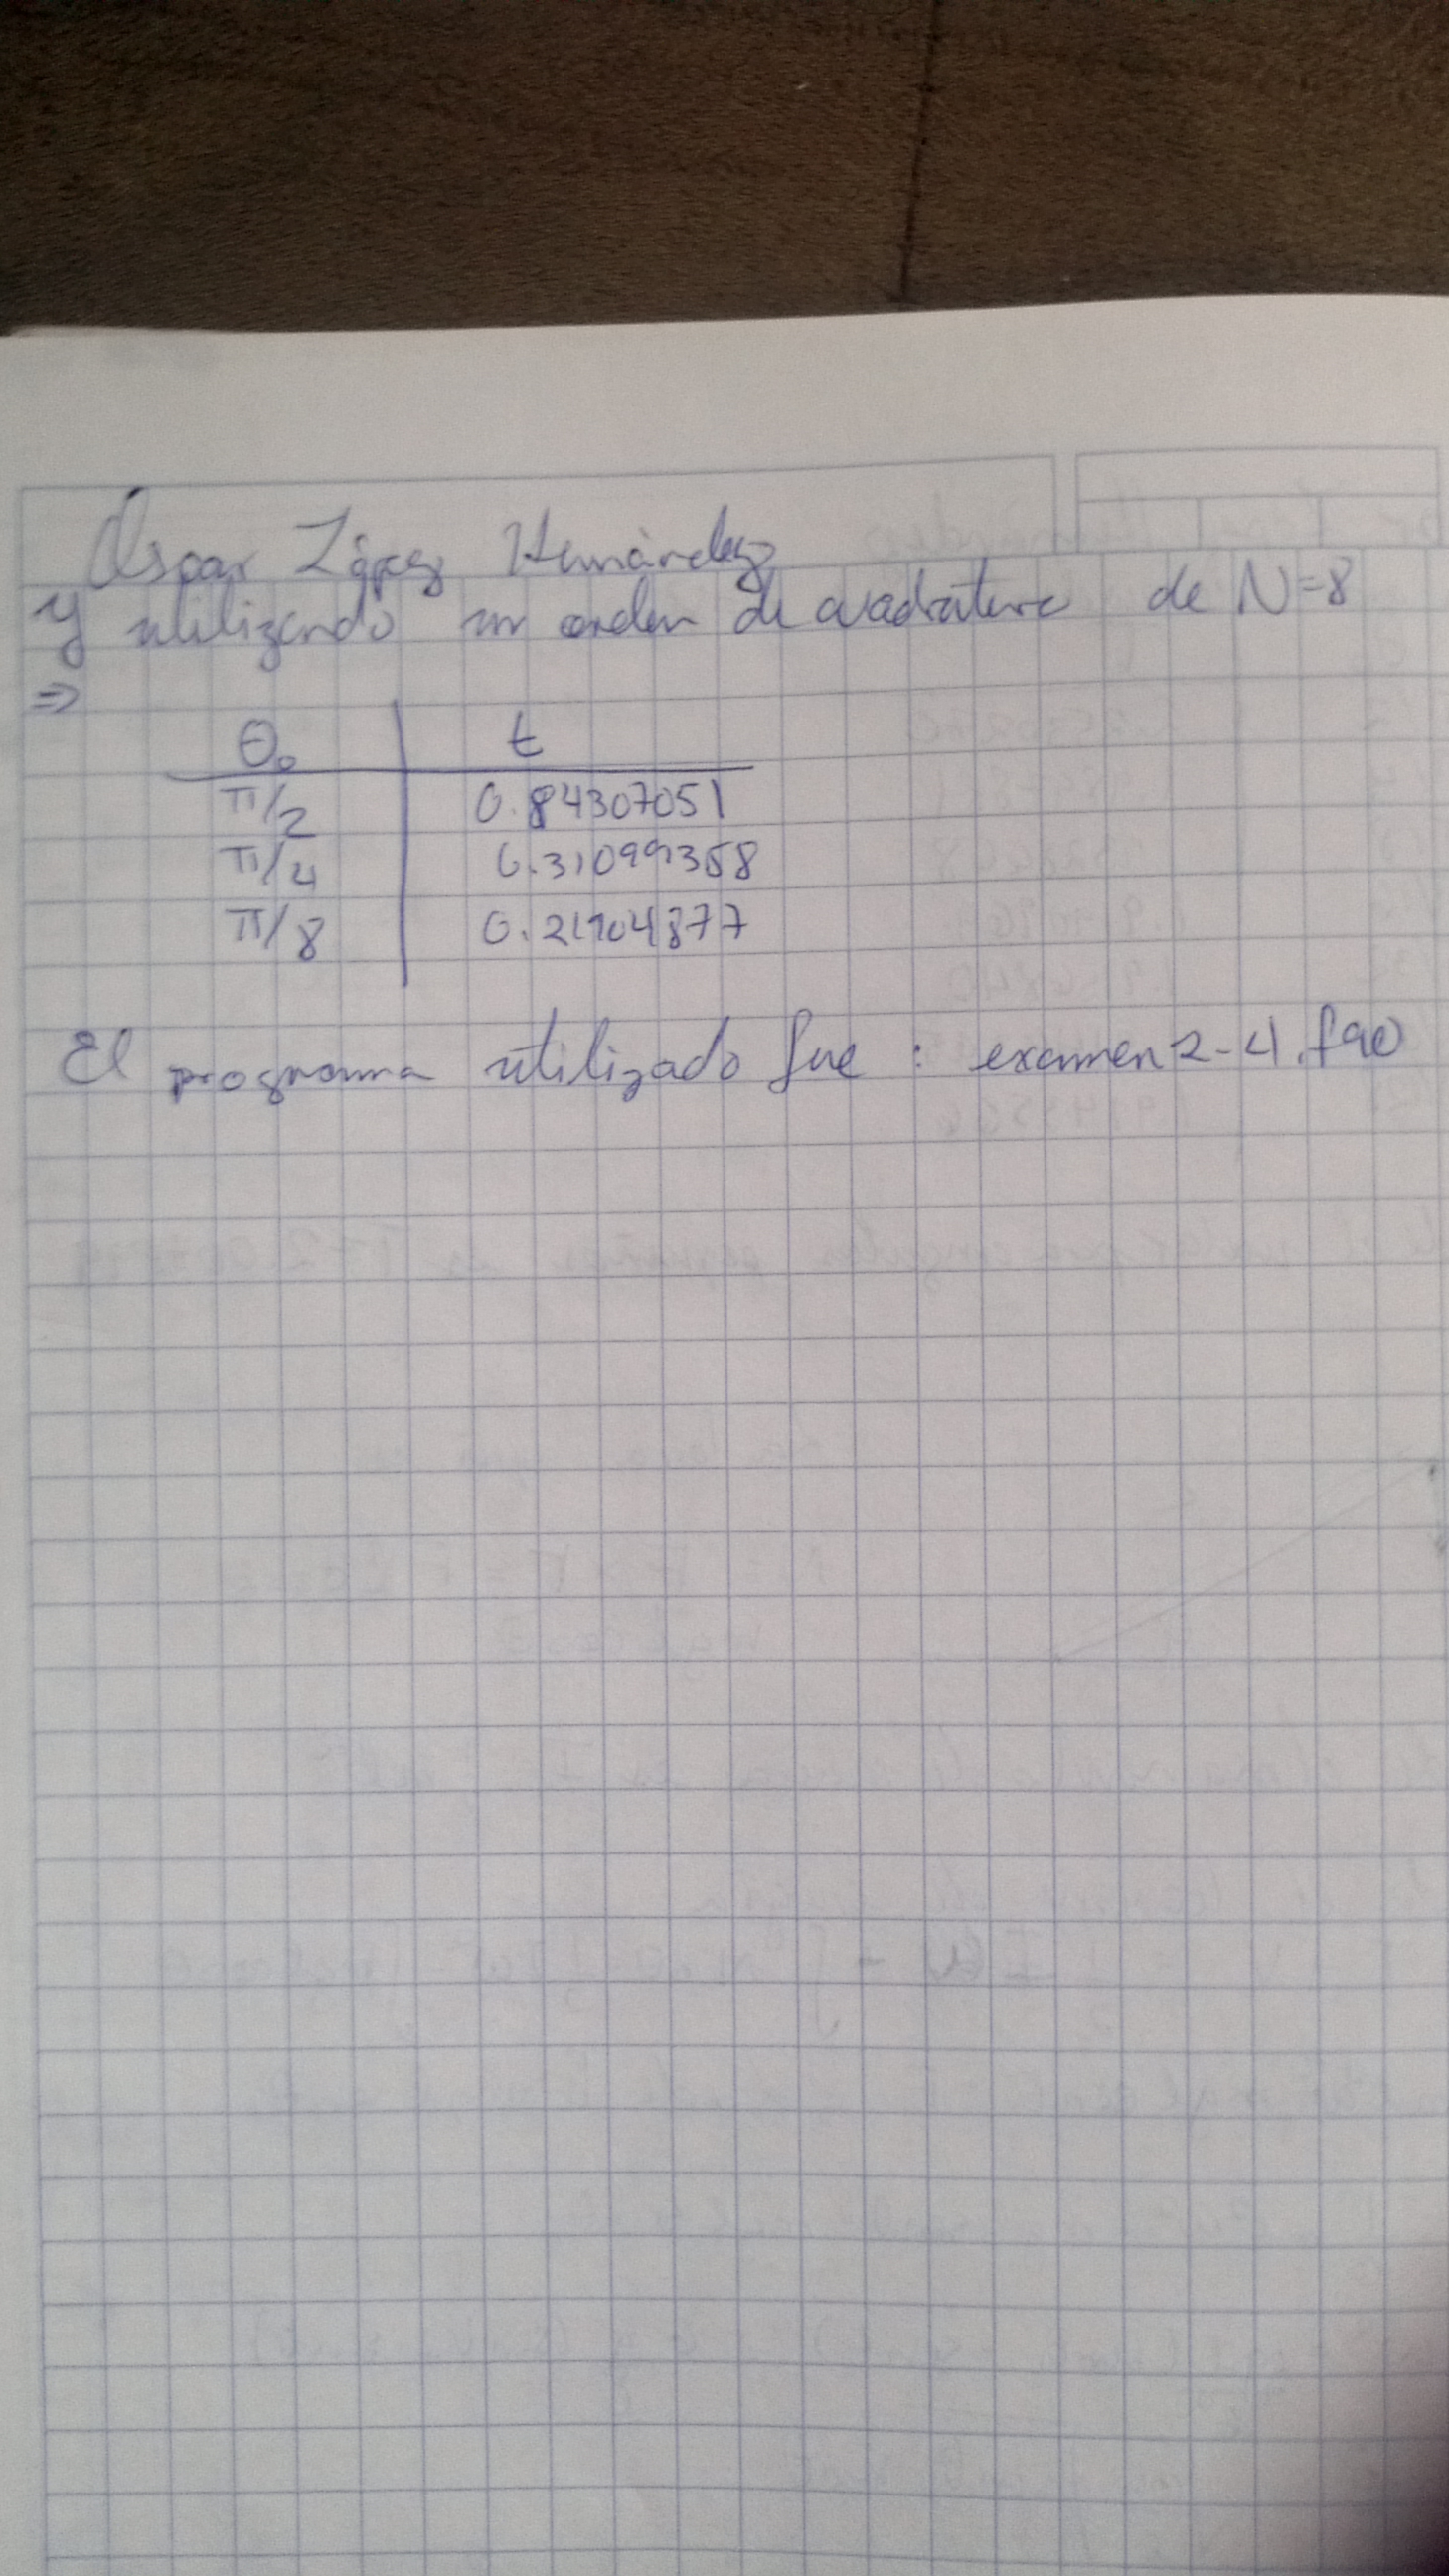 Óscar López Hernández
y utilizando un orden de cuadratura de N=8
⇒
θ₀ t
π/2 0.84307051
π/4 0.31099358
π/8 0.21904877
El programa utilizado fue: examen2-4.f90